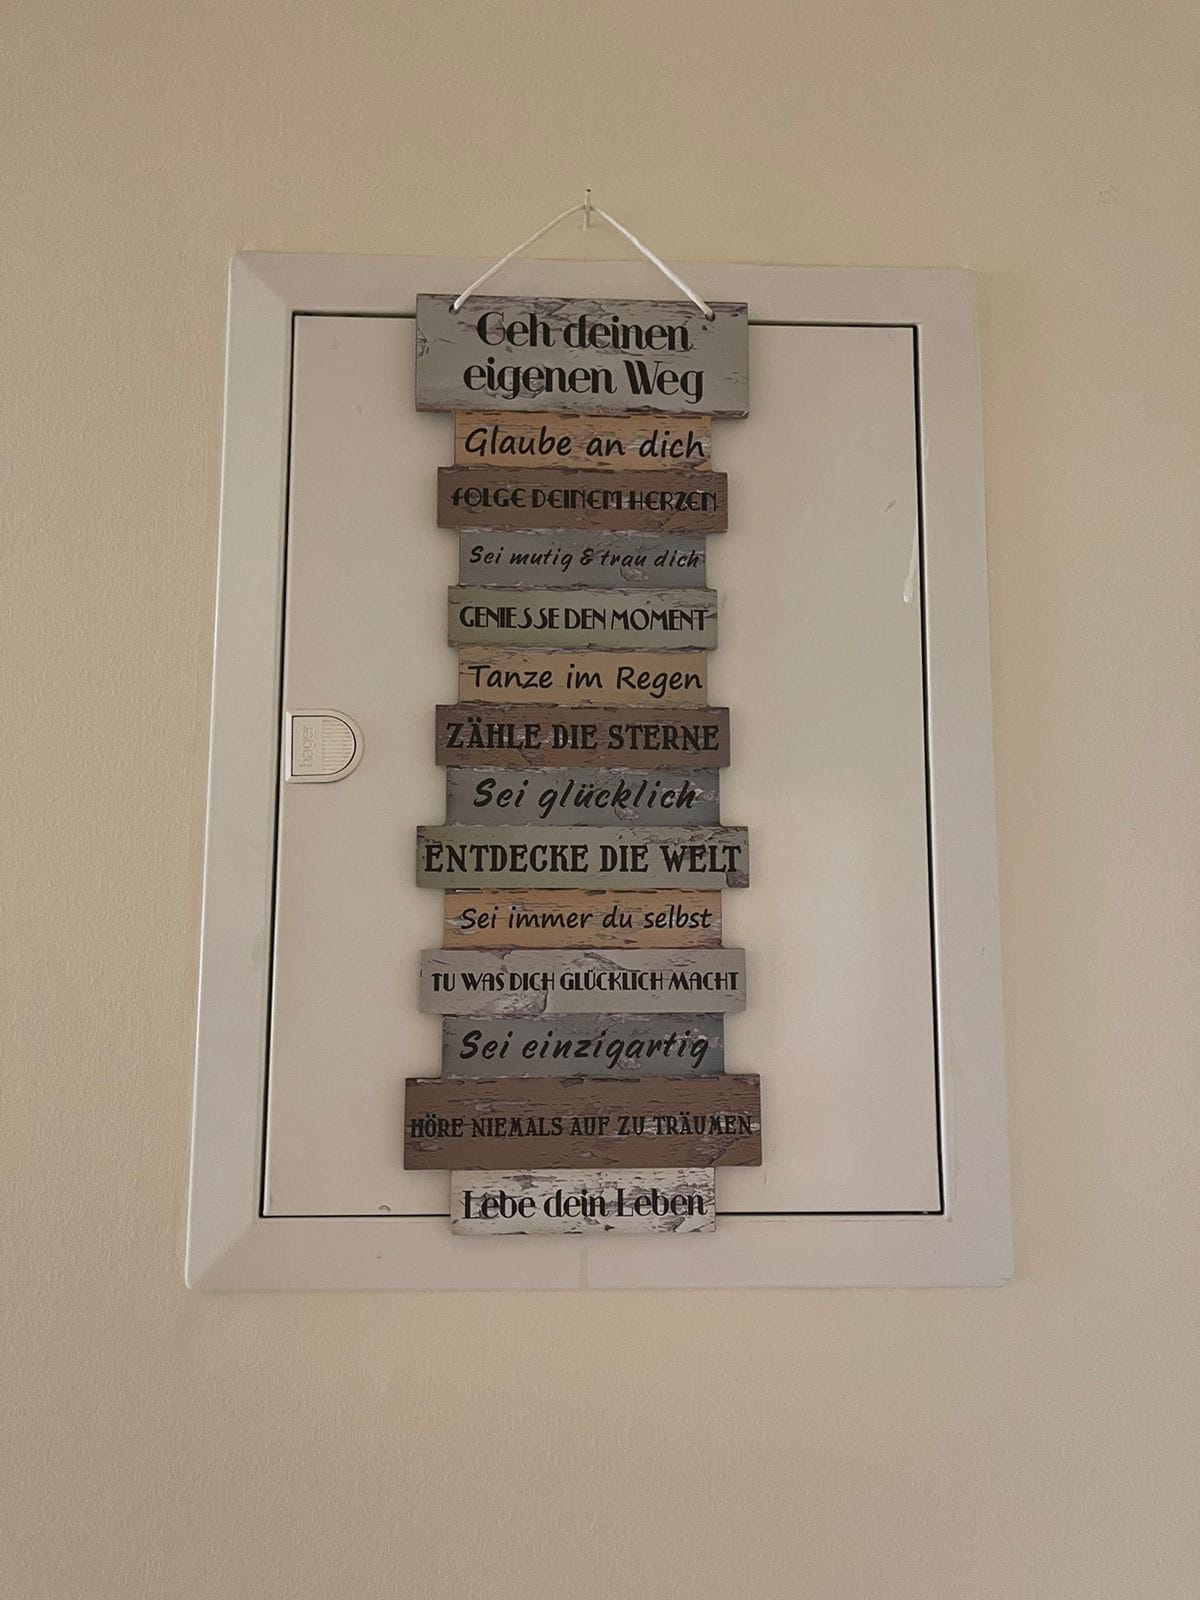 Geh deinen
eigenen Weg
Glaube an dich
FOLGE DEINEM HERZEN
Sei mutig & trau dich
GENIESSE DEN MOMENT
Tanze im Regen
ZÄHLE DIE STERNE
hager
Sei glücklich
ENTDECKE DIE WELT
Sei immer du selbst
TU WAS DICH GLÜCKLICH MACHT
Sei einzigartig
HÖRE NIEMALS AUF ZU TRÄUMEN
Lebe dein Leben